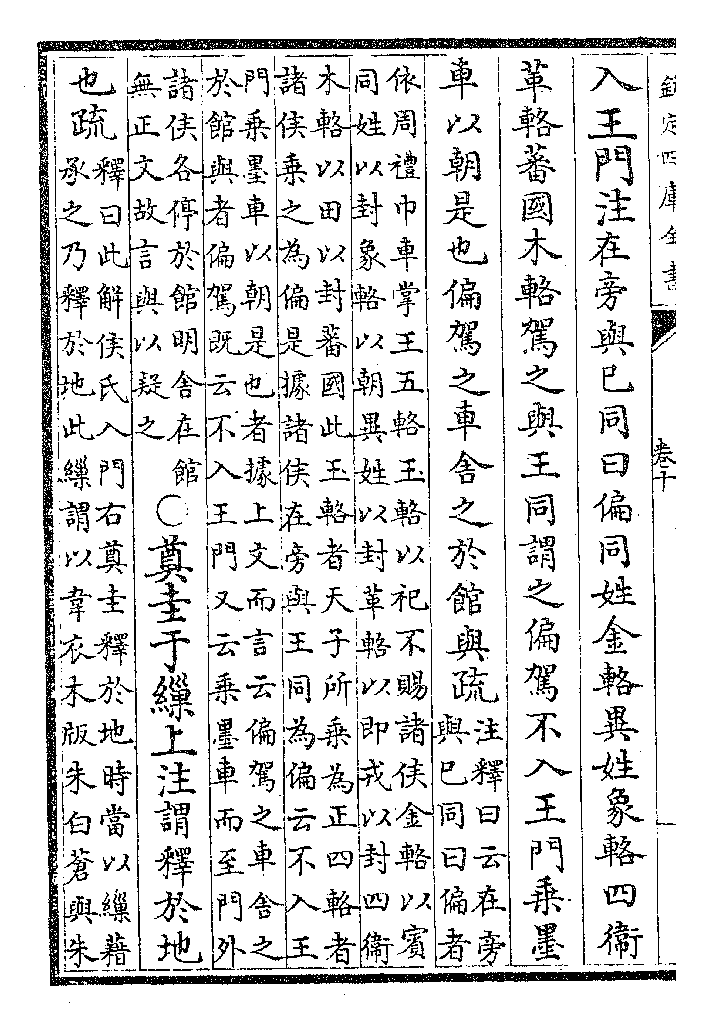 欽定四庫全書
卷十
一
入王門注在旁與巳同曰偏同姓金輅異姓象輅四衞
革輅蕃國木輅駕之與王同謂之偏駕不入王門乗墨
車以朝是也偏駕之車舍之於館與疏
注釋曰云在旁
與巳同曰偏者
依周禮巾車掌王五輅玉輅以祀不賜諸侯金輅以賓
同姓以封象輅以朝異姓以封革輅以即戎以封四衞
木輅以田以封蕃國此玉輅者天子所乗為正四輅者
諸侯乗之為偏是據諸侯在旁與王同為偏云不入王
門乗墨車以朝是也者據上文而言云偏駕之車舍之
於館與者偏駕既云不入王門又云乗墨車而至門外
諸侯各停於館明舍在館
無正文故言與以疑之
○奠圭于繅上注謂釋於地
也疏
釋曰此解侯氏入門右奠圭釋於地時當以繅藉
承之乃釋於地此繅謂以韋衣木版朱白蒼與朱